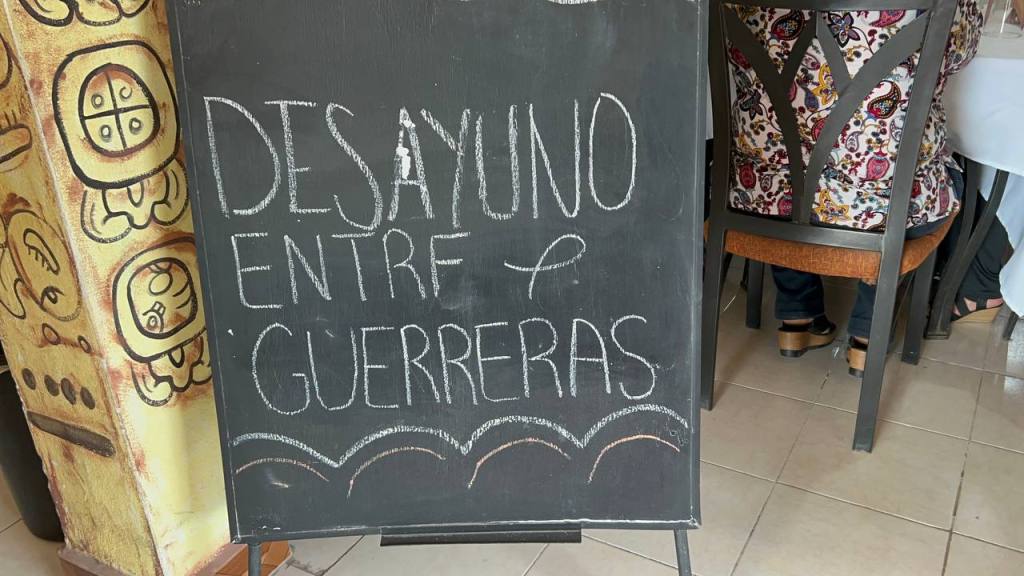 DESAYUNO
ENTRE
GUERRERAS